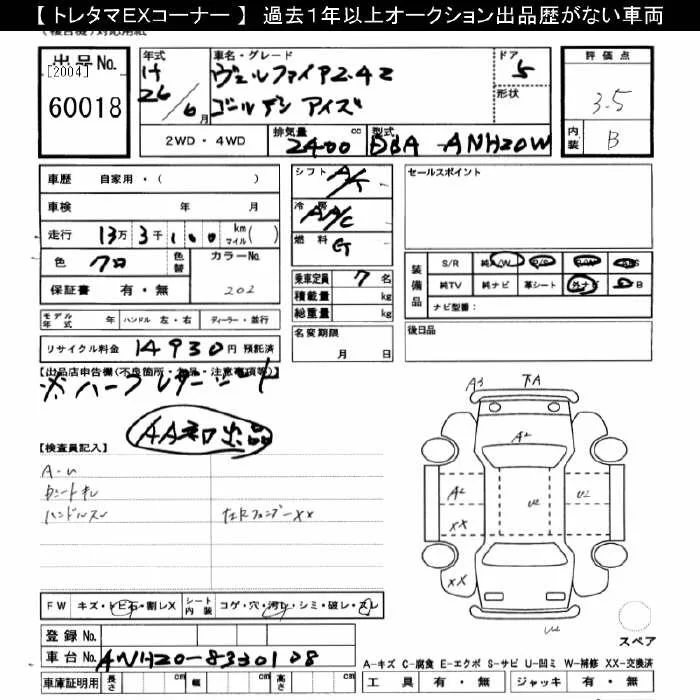 【 トレタマEXコーナー 】 過去1年以上オークション出品歴がない車両
出品No.
[2004]
60018
年式
H
26/6月
車名・グレード
ヴェルファイア2.4Z
ゴールデンアイズ
ドア
5
形状
評価点
3.5
内装
B
2WD・4WD
排気量
2400 cc
型式
DBA-ANH20W
車歴 自家用・( )
車検 年 月
走行 13万3千100 km マイル( )
色 クロ 色替 カラーNo. 202
保証書 有・無
シフト A/T
冷房 AA/C
燃料 G
乗車定員 7名
積載量 kg
総重量 kg
セールスポイント
装備品
S/R 純A/W P/S P/W ABS
純TV 純ナビ 革シート 外ナビ B
ナビ型番:
モデル年式 年 ハンドル 左・右 ディーラー・並行
リサイクル料金 14930円 預託済
名変期限
月 日
後日品
【出品店申告欄(不良箇所・欠品・注意事項等)】
※ハーフレザーシート
AA初出品
【検査員記入】
A・U
内シートキレ
ハンドルスレ
左Rフェンダーxx
A3 下A
A2
A2 U2 U2
XX
XX
U2
スペア
FW キズ・トビ石・割レX シート内装 コゲ・穴・汚レ・シミ・破レ・スレ
登録No.
車台No. ANH20-8330108
車庫証明用 長さ cm 幅 cm 高さ cm
A-キズ C-腐食 E-エクボ S-サビ U-凹ミ W-補修 XX-交換済
工具 有・無 ジャッキ 有・無